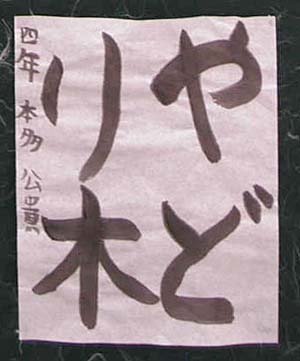 やど
り木
四年 本多 公貴